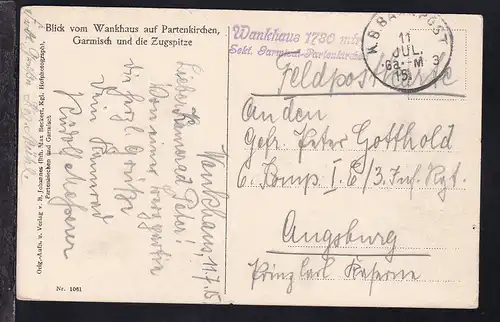 Blick vom Wankhaus auf Partenkirchen,
Garmisch und die Zugspitze
Wankhaus 1780 mtr
Sekt. Garmisch-Partenkirchen
K.B. BAHNPOST
11
JUL.
Ga.-M 3
15
Feldpostkarte
An den
Gefr. Peter Gotthold
6 Komp I. E/3. Inf. Rgt.
Augsburg
Prinz Carl Kaserne
Wankhaus, 11.7.15
Lieber Kamerad Peter!
Von einer
die herzl. Grüße
Dein Kamerad
Orig.-Aufn. u. Verlag v. B. Johannes, Inh. Max Beckert, Kgl. Hofphotograph,
Partenkirchen und Garmisch
Nr. 1061